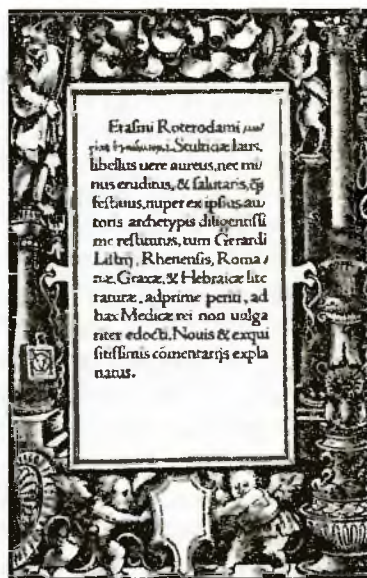 Erasmi Roterodami
Stulticiæ laus,
libellus uere aureus, nec mi/
nus eruditus, & salutaris, q̄3
festiuus, nuper ex ipsius au/
toris archetypis diligentissi
me restitutus, tum Gerardi
Listrij, Rhenensis, Roma/
næ, Græcæ, & Hebraicæ lite
raturæ, adprime periti, ad
hæc Medicæ rei non uulga
riter edocti. Nouis & exqui
sitissimis cōmentarijs expla
natus.